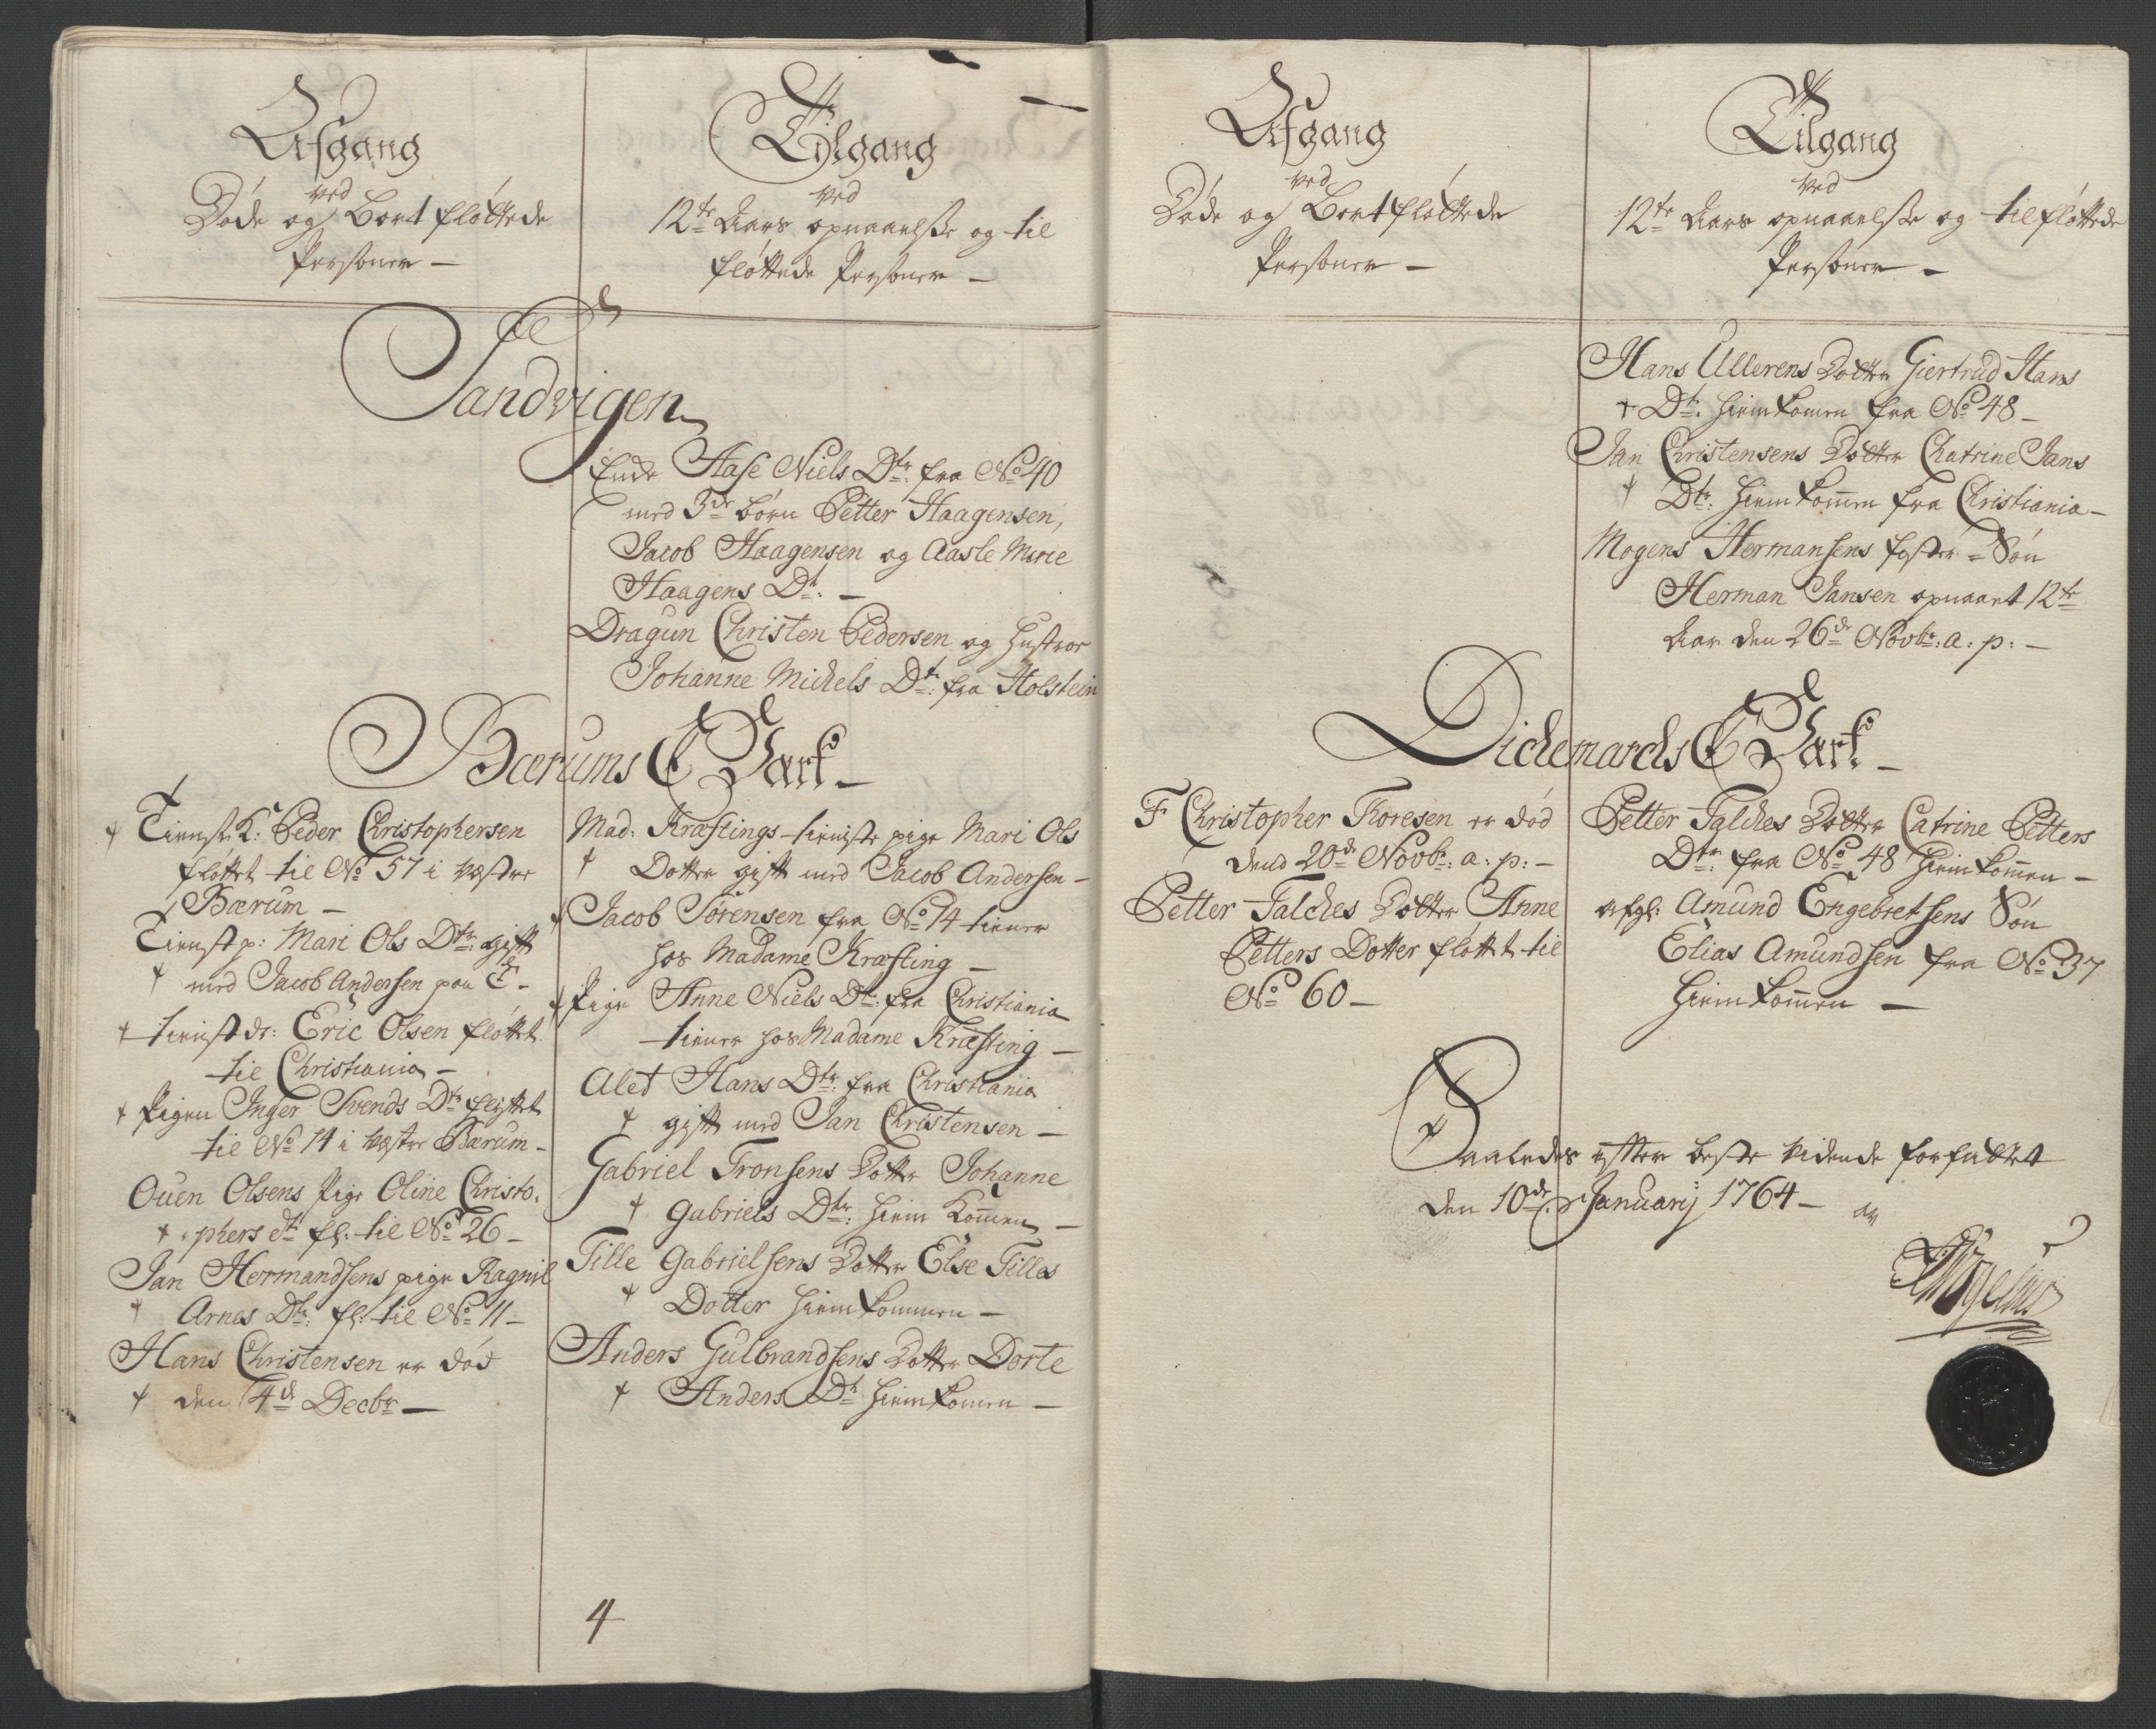 Afgang
ved
Døde og Bortfløttede
Personer —
Tilgang
ved
12te Aars opnaaelse og til
fløttede Personer —
Sandvigen
Enke Aase Niels Dtr: fra No 40
med 3de børn Petter Haagensen,
Jacob Haagensen og Aasle Marie
Haagens Dtr: —
Dragun Christen Pedersen og Hustroe
Johanne Michels Dtr: fra Holstein
Bærums Værk —
Tienste K: Peder Christophersen
fløttet til No 57 i Væstre
Bærum —
Tienstp: Mari Ols Dtr: gift
med Jacob Andersen paa V. —
tienstdr: Eric Olsen fløttet
til Christiania —
Pigen Inger Svends Dtr fløttet
til No 14 i Væstre Bærum —
Ouen Olsens Pige Oline Christo-
phers dtr fl: til No 26 —
Jan Hermandsens pige Ragnil
Arnes Dtr: fl: til No 11 —
Hans Christensen er död
den 4de Decbr —
Mad: Kræftings tieniste pige Mari Ols
Dotter gift med Jacob Andersen —
Jacob Sørensen fra No 14 tiener
hos Madame Kræfting —
Pige Anne Niels Dtr: fra Christiania
tiener hos Madame Kræfting —
Alet Hans Dtr: fra Christiania
gift med Jan Christensen —
Gabriel Tronsens Dotter Johanne
Gabriels Dtr: hiem kommen —
Tille Gabrielsens Dotter Else Tilles
Dotter hiemkommen —
Anders Gulbrandsens Dotter Dorte
Anders Dtr hiemkommen —
4
Afgang
ved
Døde og Bortfløttede
Personer —
Tilgang
ved
12te Aars opnaaelse og tilfløttede
Personer —
Hans Ullerens Dotter Giertrud Hans
Dtr: hiemkommen fra No 48 —
Jan Christensens Dotter Chatrine Jans
Dtr: hiemkommen fra Christiania —
Mogens Hermansens foster-Søn
Herman Jansen opnaaet 12te
Aar den 26de Novbr: a: p: —
Dichemarchs Værk —
F Christopher Thoresen er död
dend 20de Novbr: a: p: —
Petter Falches Dotter Anne
Petters Dotter fløttet til
No 60 —
Petter Falches Dotter Catrine Petters
Dtr: fra No 48 hiemkommen —
afgl: Amund Engebretsens Søn
Elias Amundsen fra No 37
hiemkommen —
Saaledes efter beste vidende forfattet
den 10de Januarij 1764 — af